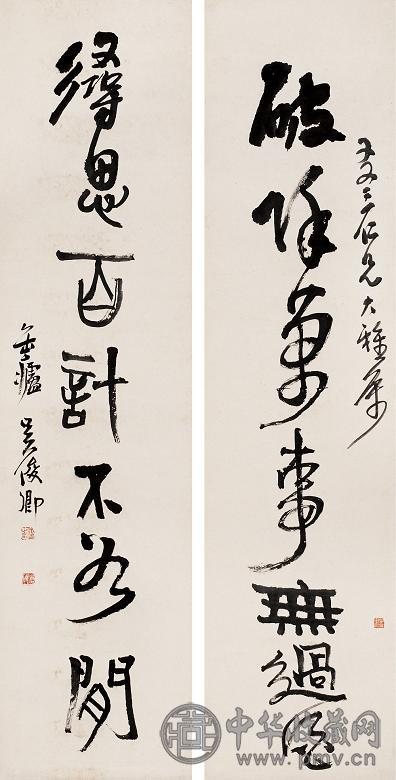 破除萬事無過酒
三仁兄大雅屬
尋思百計不如閒
缶廬 吳俊卿
中华收藏网
www.pmv.cn